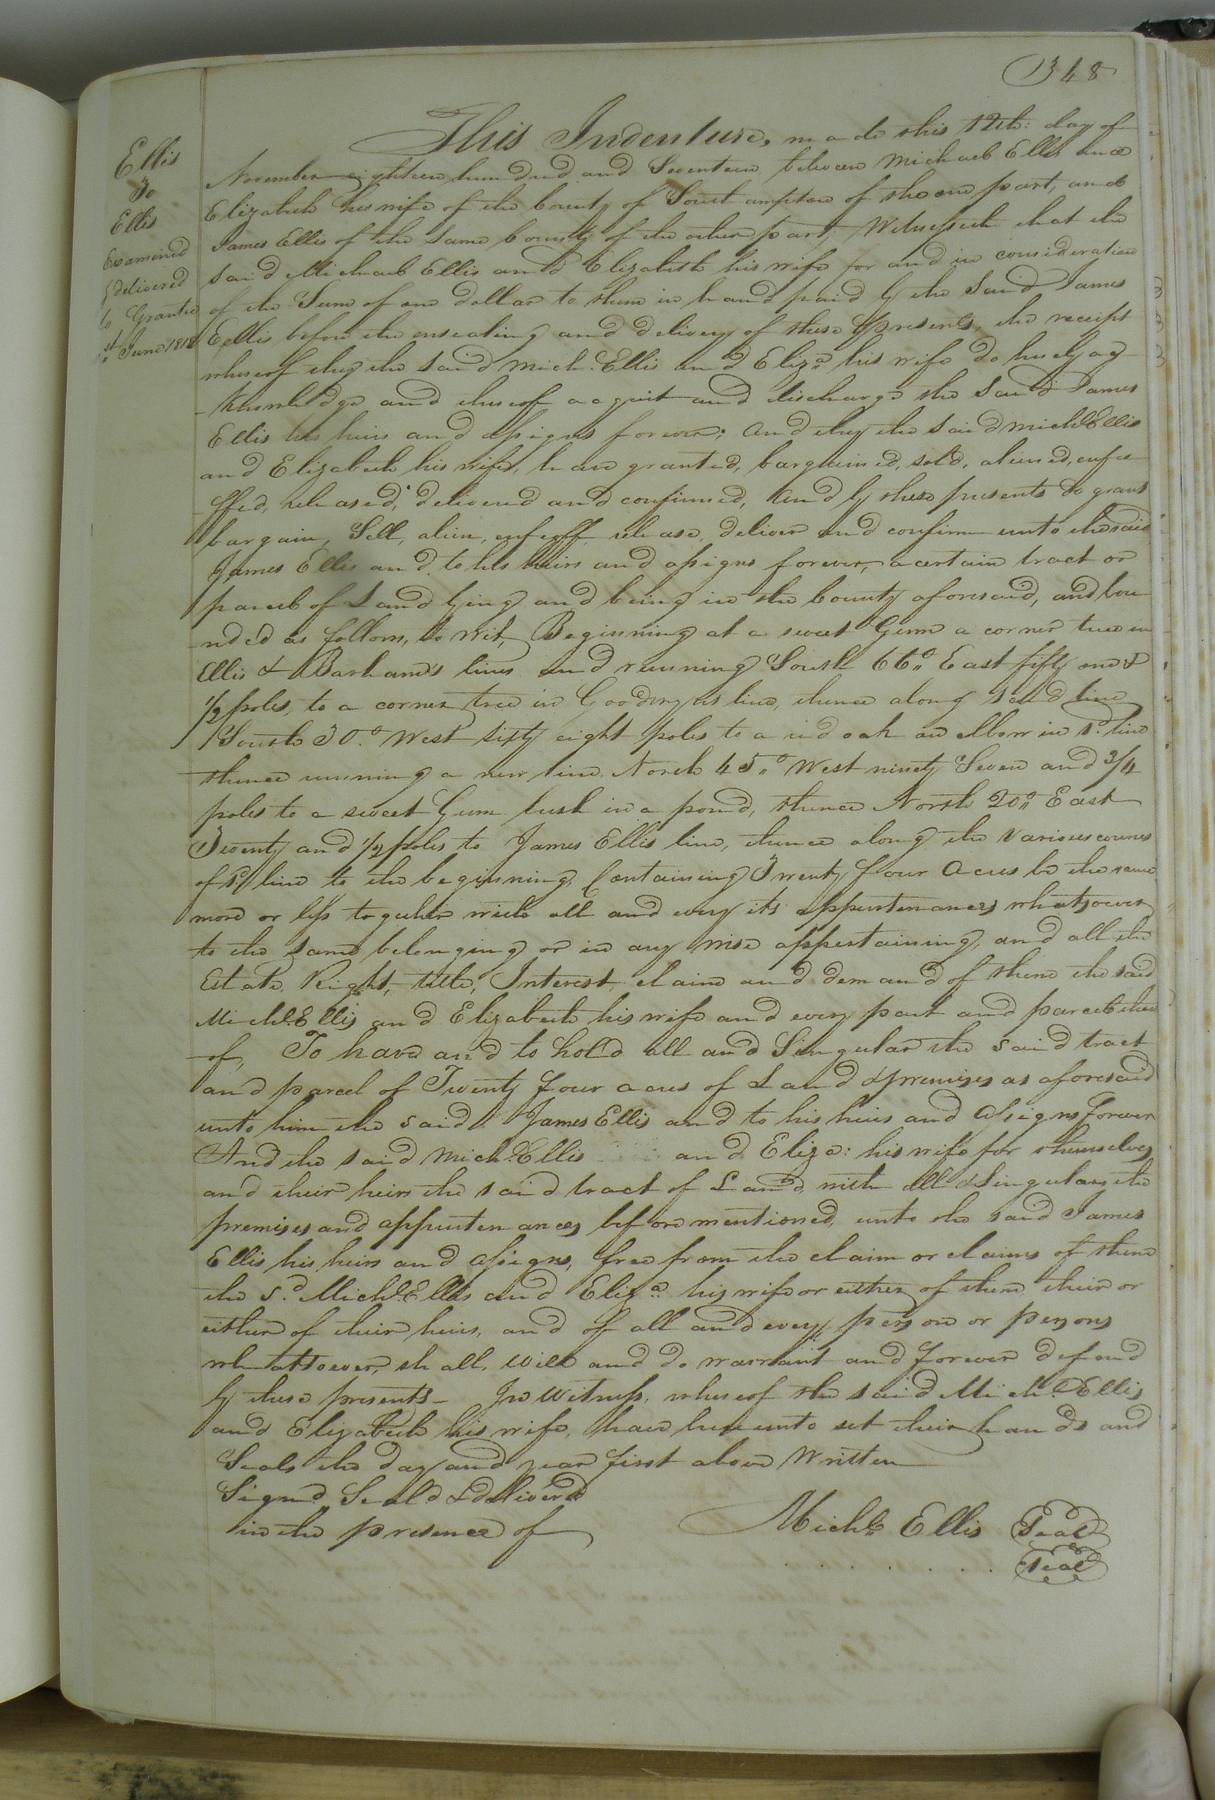 348
Ellis
To
Ellis
Examined
& delivered
to Grantee
1st June 1818
This Indenture, made this 12th: day of
November eighteen hundred and Seventeen between Michael Ellis and
Elizabeth his wife of the County of Southampton of the one part, and
James Ellis of the same County of the other part, Witnesseth that the
said Michael Ellis and Elizabeth his wife for and in consideration
of the Sum of one dollar to them in hand paid by the Said James
Ellis before the ensealing and delivery of these presents, the receipt
whereof they the said Mich.l Ellis and Eliza. his wife do hereby ac
knowledge and thereof acquit and discharge the Said James
Ellis his heirs and assigns forever; And they the said Michl. Ellis
and Elizabeth his wife, have granted, bargained, sold, aliened, enfeo
ffed, released, delivered and confirmed, And by these presents do grant
bargain, Sell, alien, enfeoff, release, deliver and confirm unto the said
James Ellis and to his heirs and assigns forever, a certain tract or
parcel of Land lying and being in the County aforesaid, and bou
nded as follows, to wit, Beginning at a sweet Gum a corner tree in
Ellis & Barham's lines and running South 66° East fifty one &
1/2 poles, to a corner tree in line, thence along said line
South 30.° West sixty eight poles to a red oak an elbow in sd. line
thence running a new line North 45.° West ninety Seven and 3/4
poles to a sweet Gum bush in a pond, thence North 20° East
Twenty and 1/2 poles to James Ellis line, thence along the various courses
of sd. line to the beginning, Containing Twenty four Acres be the same
more or less together with all and every its appurtenances whatsoever
to the same belonging or in any wise appertaining, and all the
Estate, Right, title, Interest, claim and demand of them the said
Michl. Ellis and Elizabeth his wife and every part and parcel there
of, To have and to hold all and Singular the said tract
and parcel of Twenty four acres of Land & premises as aforesaid
unto him the said James Ellis and to his heirs and Assigns Forever
And the said Mich.l Ellis and Eliza: his wife for themselves
and their heirs the said tract of Land, with all & Singular the
premises and appurtenances before mentioned, unto the said James
Ellis his heirs and Assigns, free from the claim or claims of them
the sd. Michl. Ellis and Eliza. his wife or either of them their or
either of their heirs, and of all and every person or persons
whatsoever, shall, will and do warrant and forever defend
by these presents - In Witness, whereof the said Mich.l Ellis
and Elizabeth his wife, have hereunto set their hands and
Seals the day and year first above Written
Signd Seald & deliverd
in the presence of
Michl. Ellis Seal
Seal